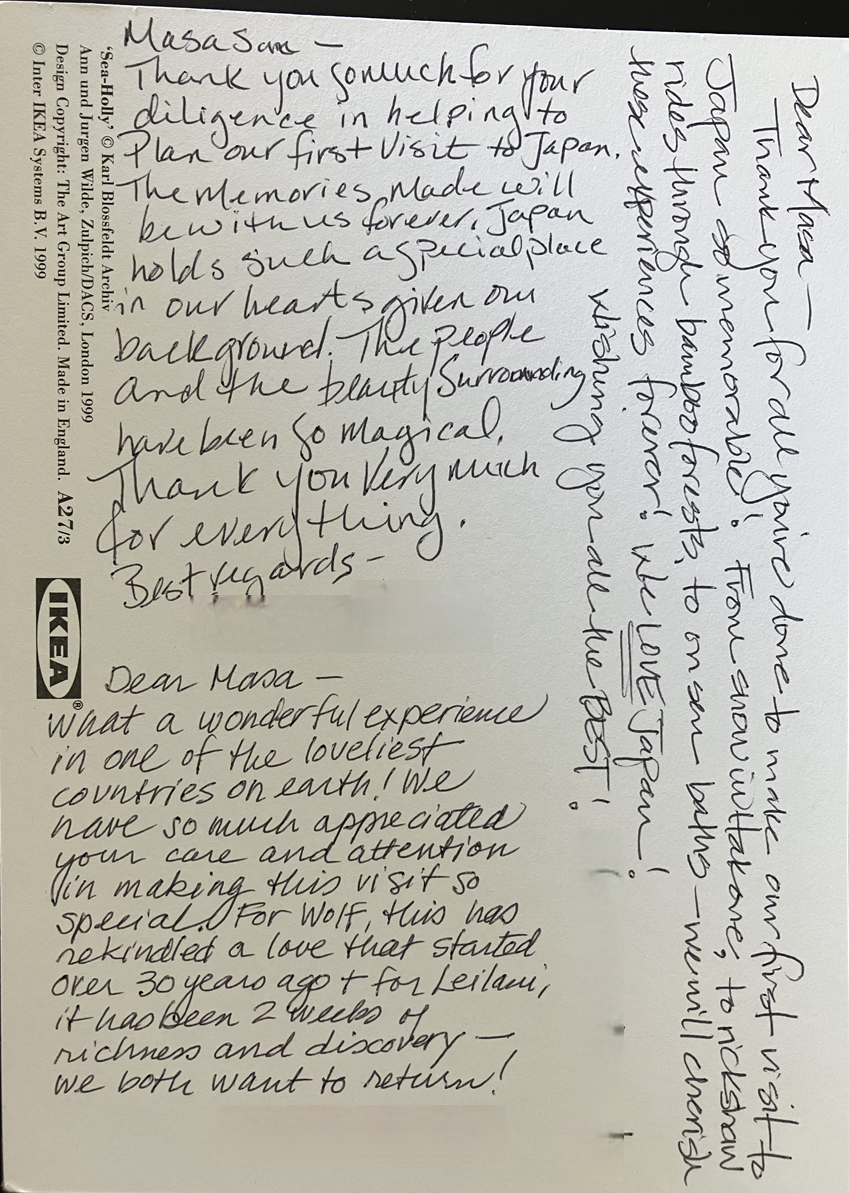 Masa San —
Thank you so much for your
diligence in helping to
Plan our first visit to Japan.
The Memories Made will
be with us forever. Japan
holds such a special place
in our hearts given our
background. The people
and the beauty Surrounding
have been so Magical.
Thank you Very Much
for everything.
Best regards —
Dear Masa —
What a wonderful experience
in one of the loveliest
countries on earth! We
have so much appreciated
your care and attention
in making this visit so
special. For Wolf, this has
rekindled a love that started
over 30 years ago + for Leilani,
it has been 2 weeks of
richness and discovery —
we both want to return!
Dear Masa —
Thank you for all you've done to make our first visit to
Japan so memorable! From snow in Hakone, to rickshaw
rides through bamboo forests, to onsen baths — we will cherish
these experiences forever! We LOVE Japan!
Wishing you all the BEST!
'Sea-Holly' © Karl Blossfeldt Archiv
Ann und Jurgen Wilde, Zulpich/DACS, London 1999
Design Copyright: The Art Group Limited. Made in England. A27/3
© Inter IKEA Systems B.V. 1999
IKEA®